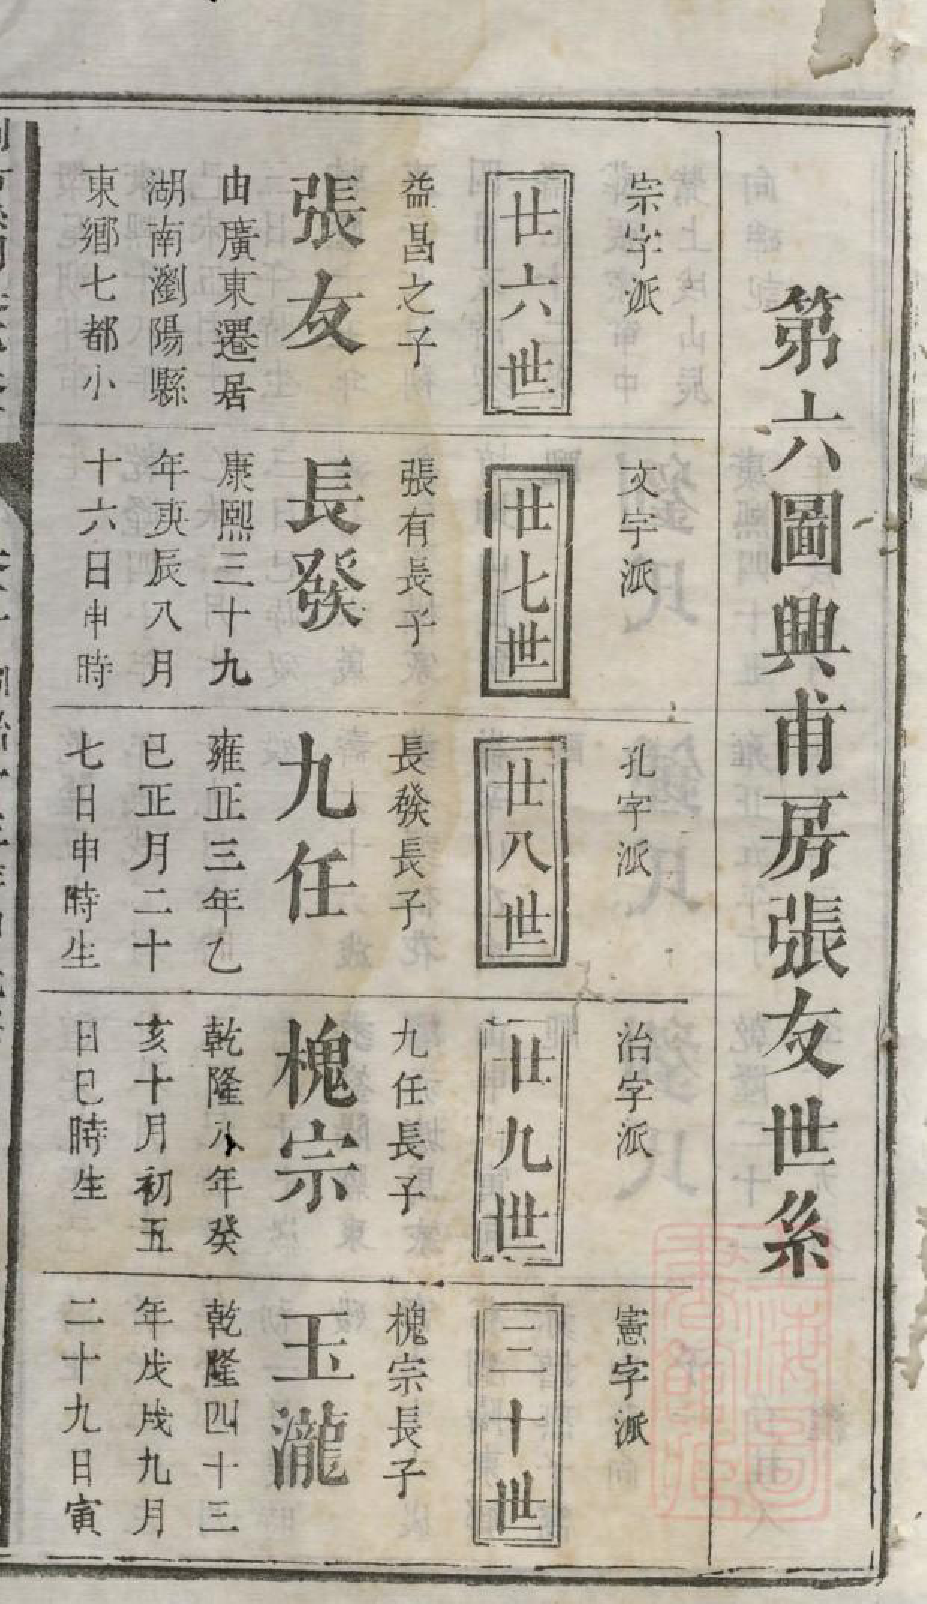 第六圖興甫房張友世系
宗字派
廿六世
益昌之子
張友
由廣東遷居
湖南瀏陽縣
東鄉七都小
文字派
廿七世
張有長子
長發
康熙三十九
年庚辰八月
十六日申時
孔字派
廿八世
長發長子
九任
雍正三年乙
巳正月二十
七日申時生
治字派
廿九世
九任長子
槐宗
乾隆八年癸
亥十月初五
日巳時生
憲字派
三十世
槐宗長子
玉瀧
乾隆四十三
年戊戌九月
二十九日寅